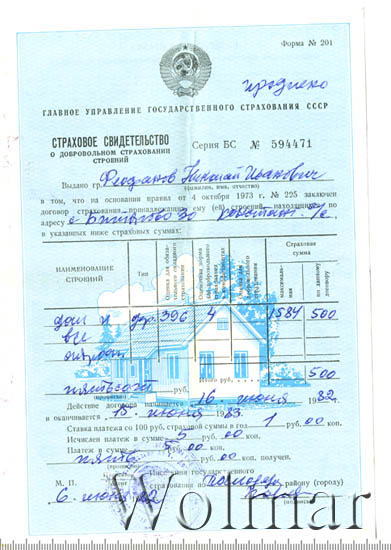 Форма № 201
продлено
ГЛАВНОЕ УПРАВЛЕНИЕ ГОСУДАРСТВЕННОГО СТРАХОВАНИЯ СССР
СТРАХОВОЕ СВИДЕТЕЛЬСТВО
О ДОБРОВОЛЬНОМ СТРАХОВАНИИ
СТРОЕНИЙ
Серия БС № 594471
Выдано гр. Николай Иванович
(фамилия, имя, отчество)
в том, что на основании правил от 4 октября 1973 г. № 225 заключен
договор страхования принадлежащих ему (ей) строений, находящихся по
адресу с.
в указанных ниже страховых суммах:
НАИМЕНОВАНИЕ СТРОЕНИЙ
Тип
Оценка для обязательного окладного страхования
Страховая сумма
максимальная
по данному договору
дом и дер. 396 4 1584 500
все
Итого руб. 500
пятьсот руб.
(прописью)
Действие договора начинается 16 июня 1982
и оканчивается 15 июня 1983
Ставка платежа со 100 руб. страховой суммы в год 1 руб. 00 коп.
Исчислен платеж в сумме 5 руб. 00 коп.
Платеж в сумме
пять руб. 00 коп. получен.
(прописью)
М. П.
Инспекция государственного
страхования по району (городу)
6 июня 82
Wolmar